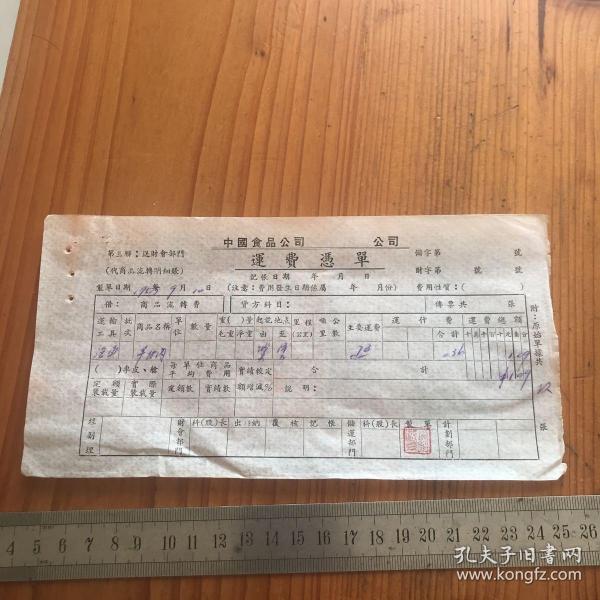 中國食品公司 公司
運費憑單
第三聯：送財會部門
(代商品流轉明細賬)
儲字第 號
財字第 號 號
記帳日期 年 月 日
製單日期 年9月 日
(注意：費用發生日期係屬 年 月份)
費用性質：( )
借：商品流轉費 貸方科目： 傳票共 張
運輸工具 批次 商品名稱 單位 數量 重( )量 毛重 淨重 起訖地點 由 至 里程(公里) 噸公里數 主要運費 運什費 合計 運費總額 十萬千百十元角分
合計
( )車皮、艙
每單位商品平均費用
實績核定
定額裝載量 實際裝載量 定額數 實績數 額增減% 說明：
附：原始單據共 張
經副理 財會部門 科(股)長 出納 覆核 記帳 儲運部門 科(股)長 製單 計劃部門
4 5 6 7 8 9 10 11 12 13 14 15 16 17 18 19 20 21 22 23 24 25 26
孔夫子旧书网
www.kongfz.com